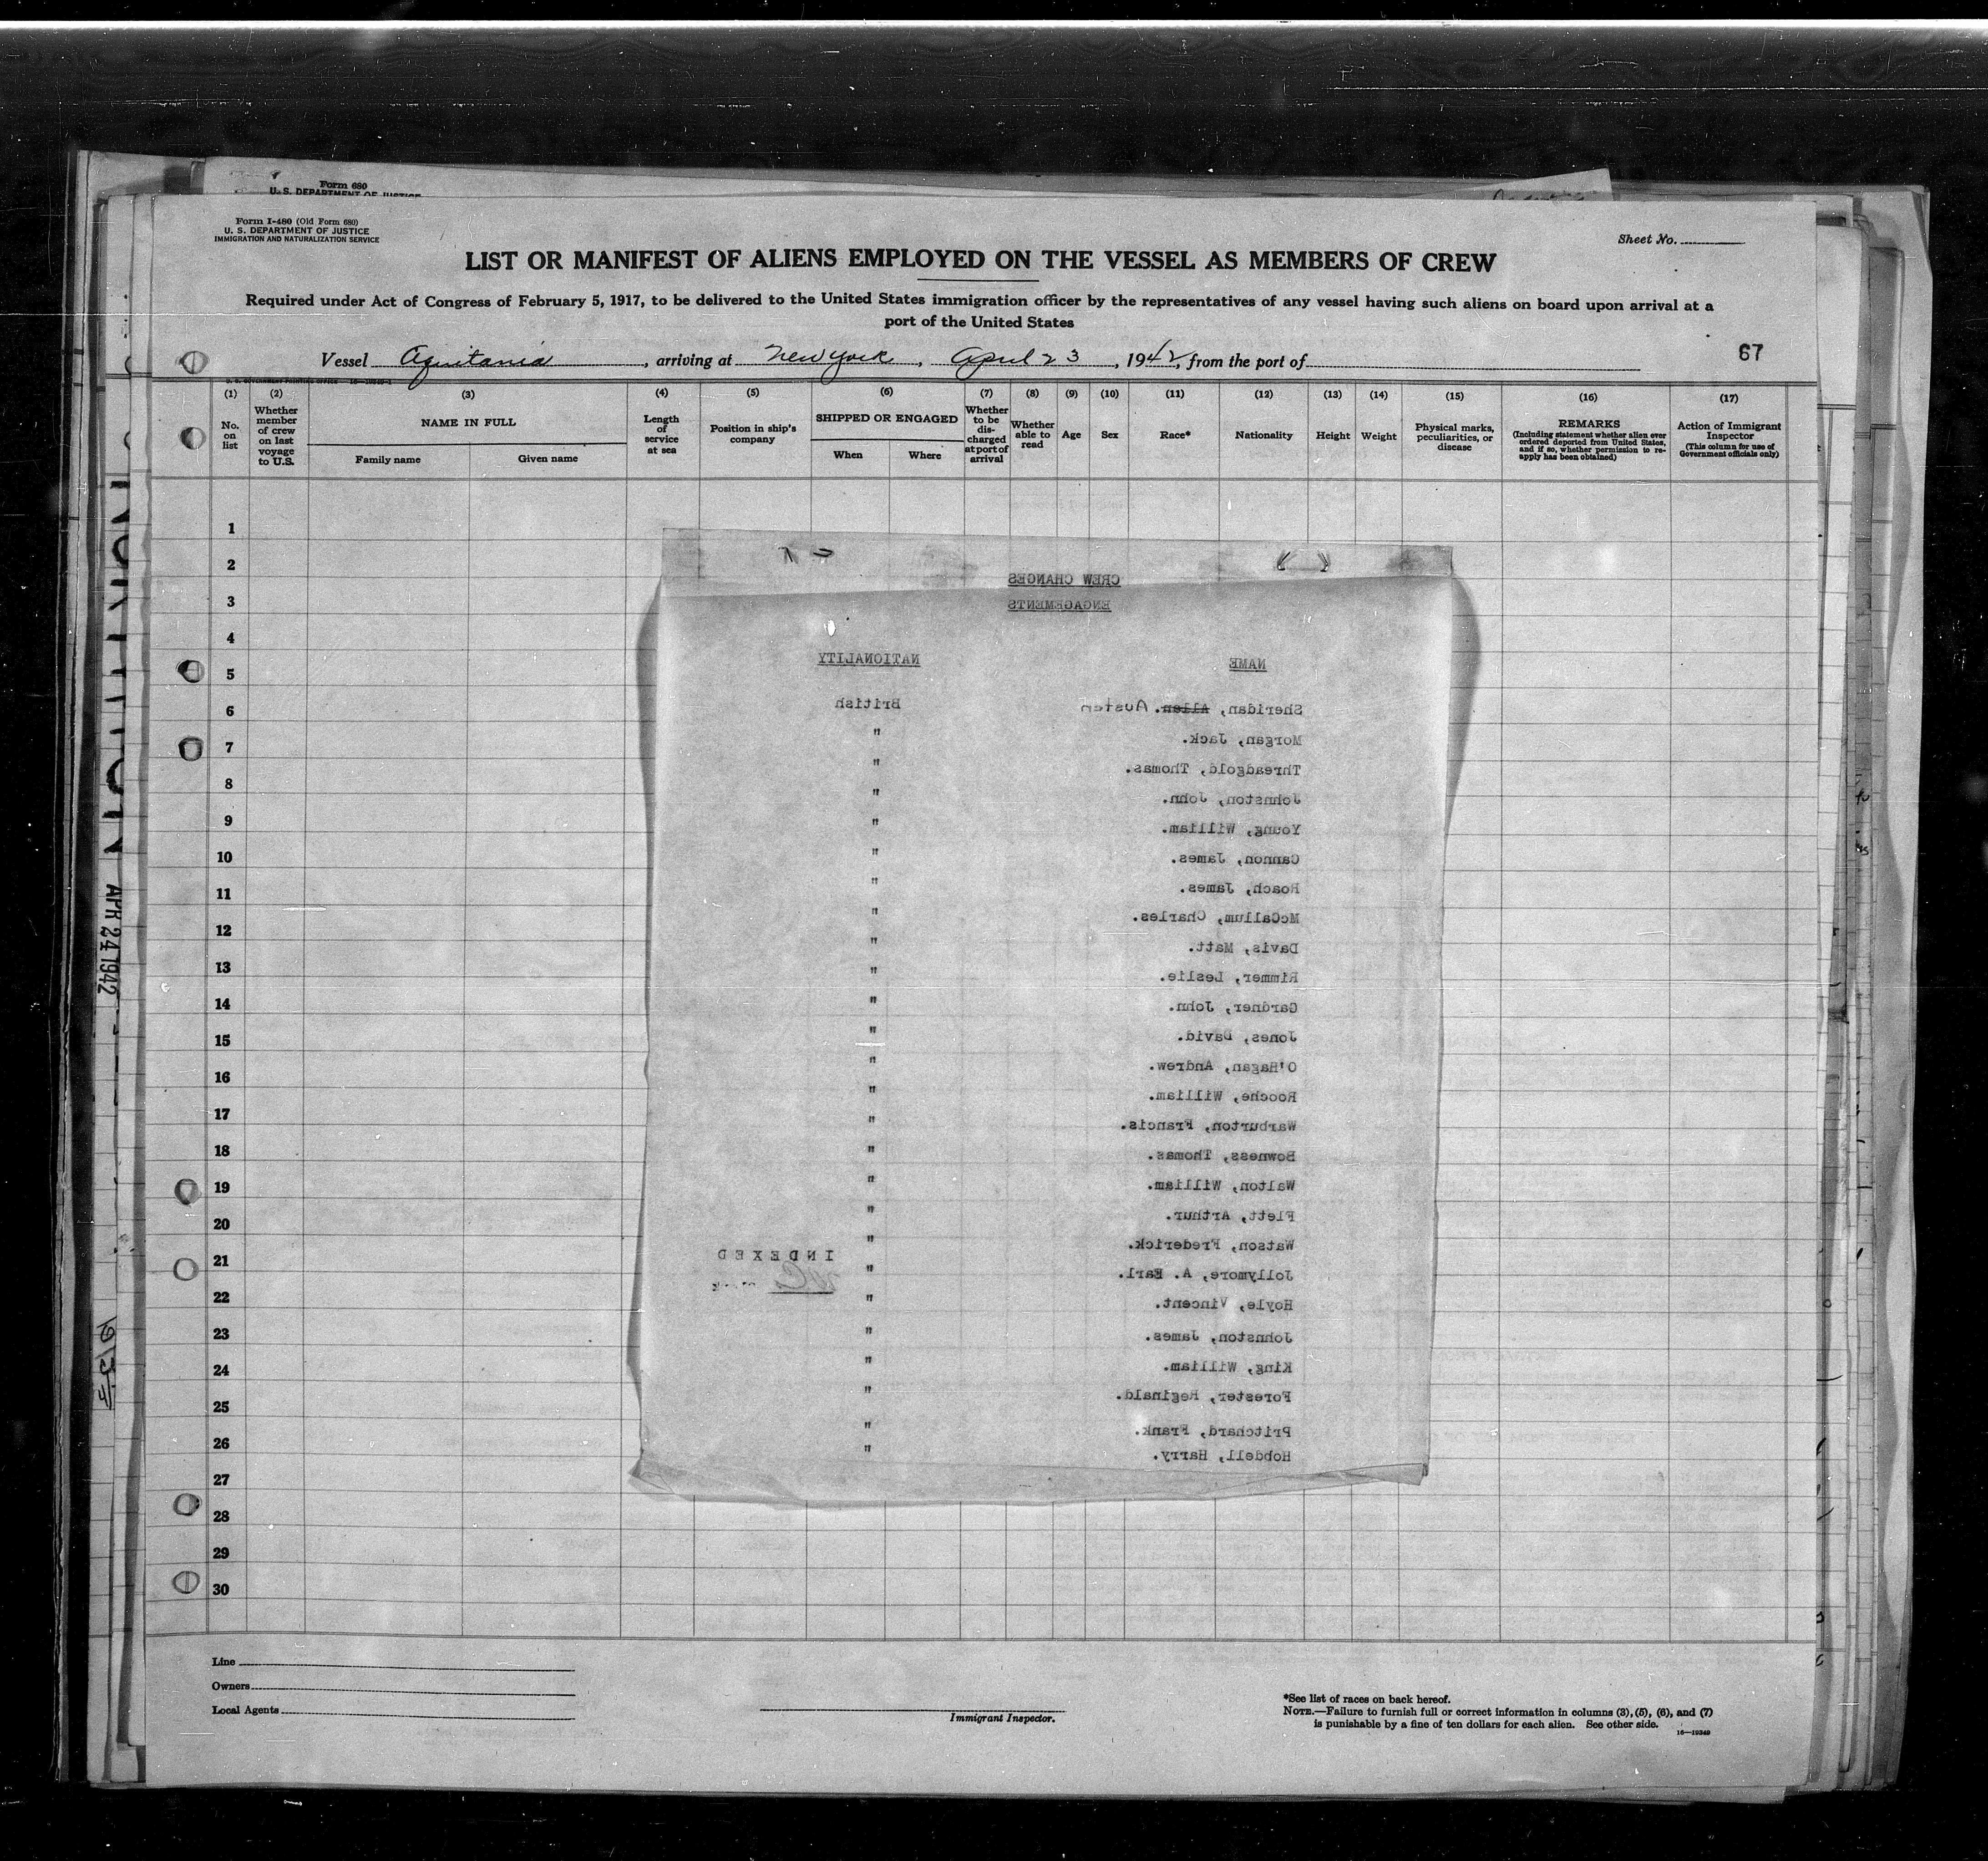 Form 680
U. S. DEPARTMENT OF JUSTICE
Form I-480 (Old Form 680)
U. S. DEPARTMENT OF JUSTICE
IMMIGRATION AND NATURALIZATION SERVICE
Sheet No.
LIST OR MANIFEST OF ALIENS EMPLOYED ON THE VESSEL AS MEMBERS OF CREW
Required under Act of Congress of February 5, 1917, to be delivered to the United States immigration officer by the representatives of any vessel having such aliens on board upon arrival at a
port of the United States
Vessel Aquitania, arriving at New York, April 23, 1942, from the port of
67
U. S. GOVERNMENT PRINTING OFFICE 16-19349-1
(1) No. on list
(2) Whether member of crew on last voyage to U.S.
(3) NAME IN FULL Family name Given name
(4) Length of service at sea
(5) Position in ship's company
(6) SHIPPED OR ENGAGED When Where
(7) Whether to be discharged at port of arrival
(8) Whether able to read
(9) Age
(10) Sex
(11) Race*
(12) Nationality
(13) Height
(14) Weight
(15) Physical marks, peculiarities, or disease
(16) REMARKS (Including statement whether alien ever ordered deported from United States, and if so, whether permission to re-apply has been obtained)
(17) Action of Immigrant Inspector (This column for use of Government officials only)
1
2
3
4
5
6
7
8
9
10
11
12
13
14
15
16
17
18
19
20
21
22
23
24
25
26
27
28
29
30
CREW CHANGES
ENGAGEMENTS
NAME NATIONALITY
Sheridan, Allen. Austen British
Morgan, Jack. "
Threadgold, Thomas. "
Johnston, John. "
Young, William. "
Cannon, James. "
Roach, James. "
McCallum, Charles. "
Davis, Matt. "
Rimmer, Leslie. "
Gardner, John. "
Jones, David. "
O'Hagan, Andrew. "
Rooche, William. "
Warburton, Francis. "
Bowness, Thomas. "
Walton, William. "
Flett, Arthur. "
Watson, Frederick. "
Jollymore, A. Earl. "
Hoyle, Vincent. "
Johnston, James. "
King, William. "
Forester, Reginald. "
Pritchard, Frank. "
Hobdell, Harry. "
INDEXED
APR 24 1942
Line
Owners
Local Agents
Immigrant Inspector.
*See list of races on back hereof.
NOTE.—Failure to furnish full or correct information in columns (3), (5), (6), and (7)
is punishable by a fine of ten dollars for each alien. See other side.
16—19349